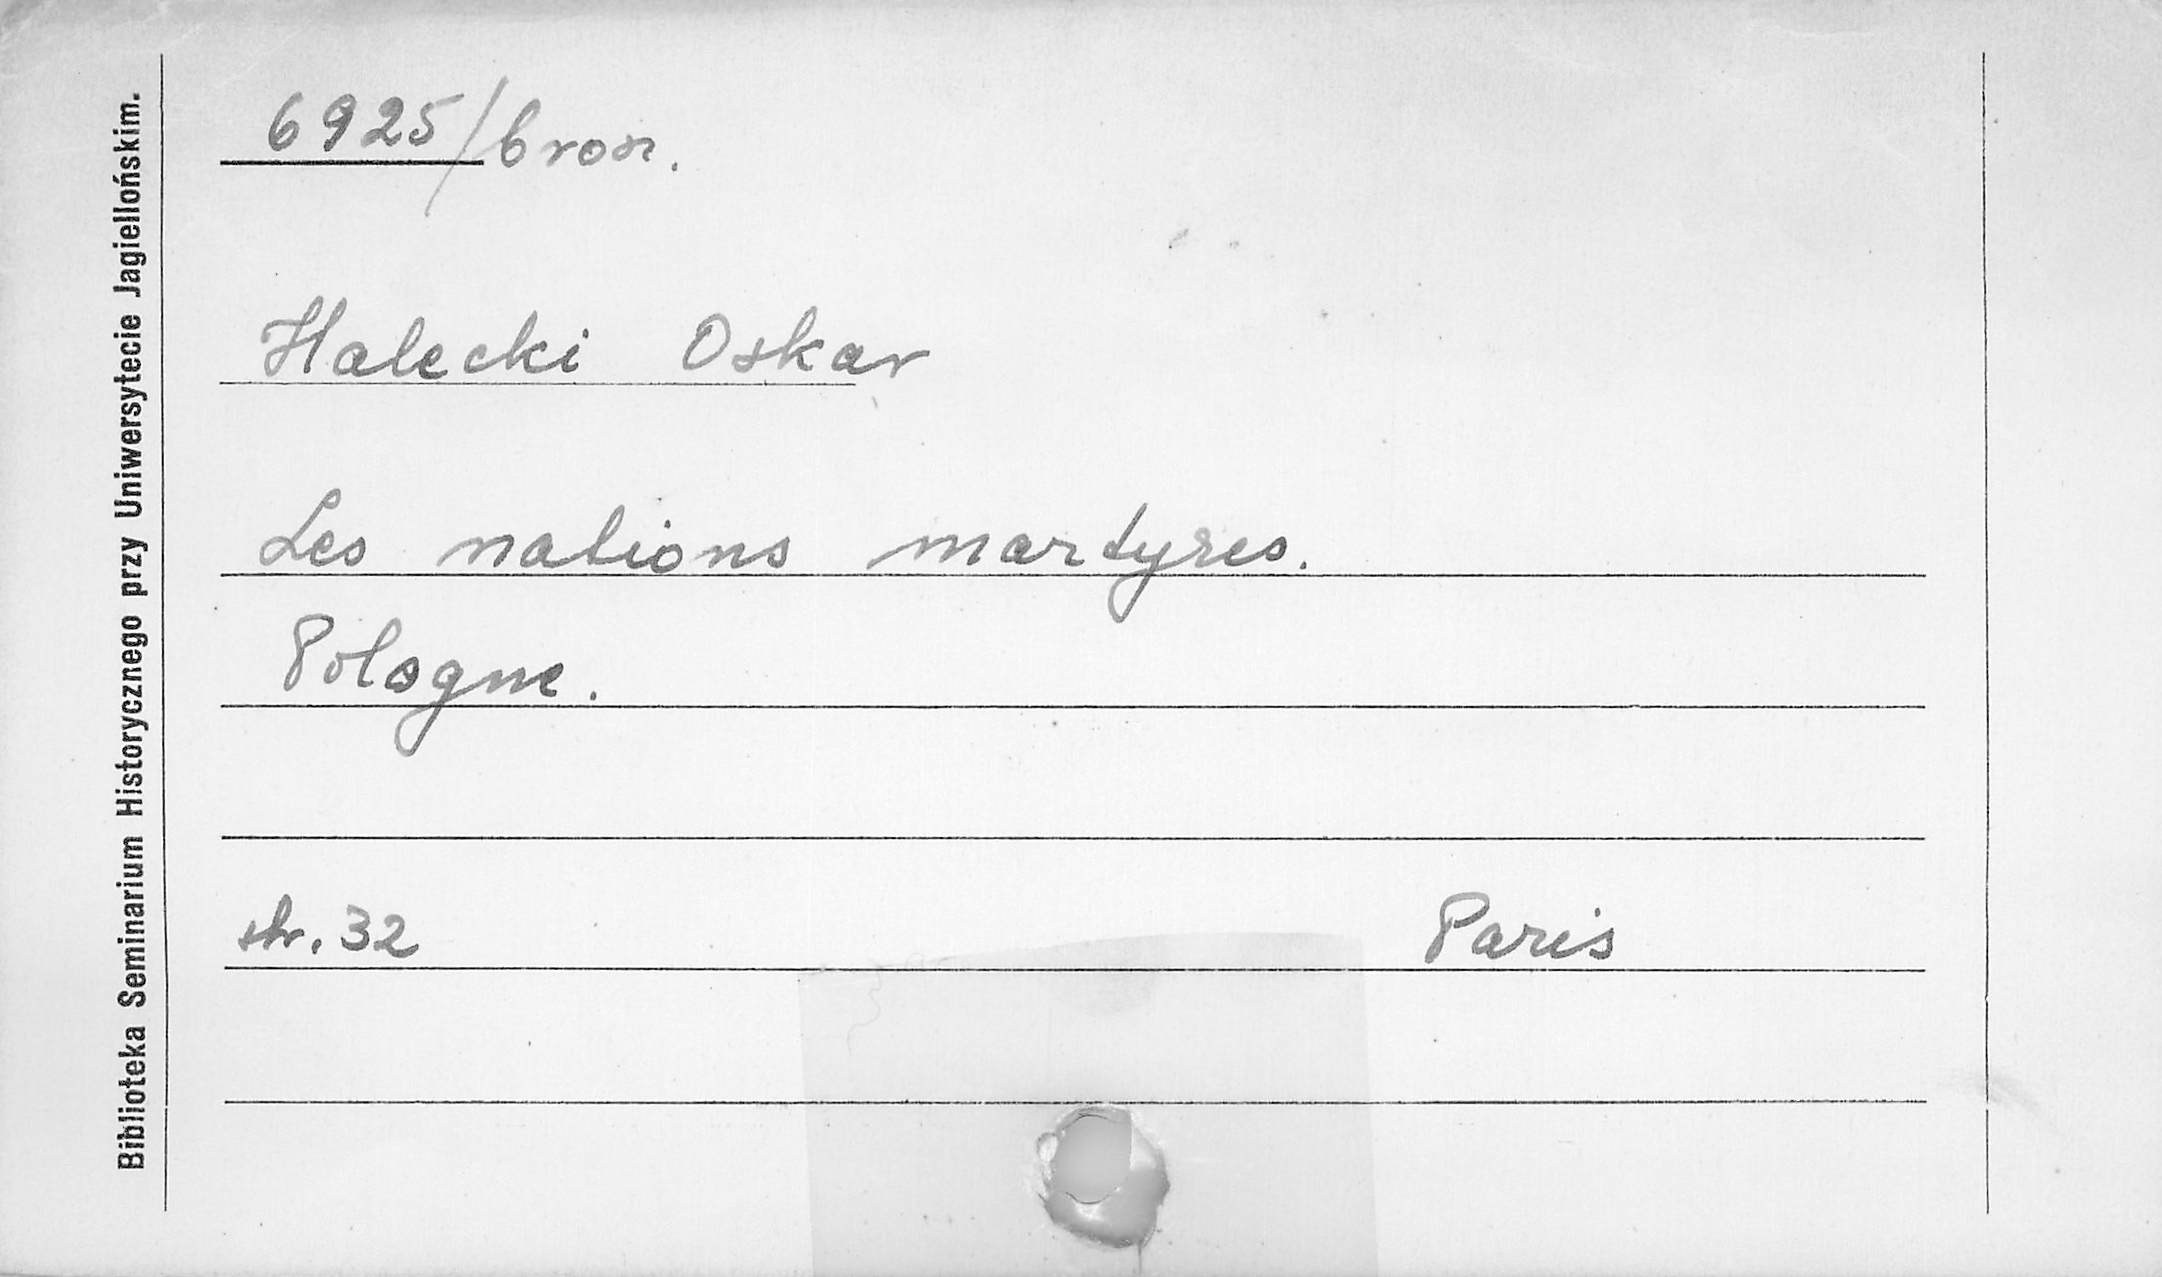 Biblioteka Seminarium Historycznego przy Uniwersytecie Jagiellońskim.
6925/brosz.
Halecki Oskar
Les nations martyres.
Pologne.
str. 32 Paris